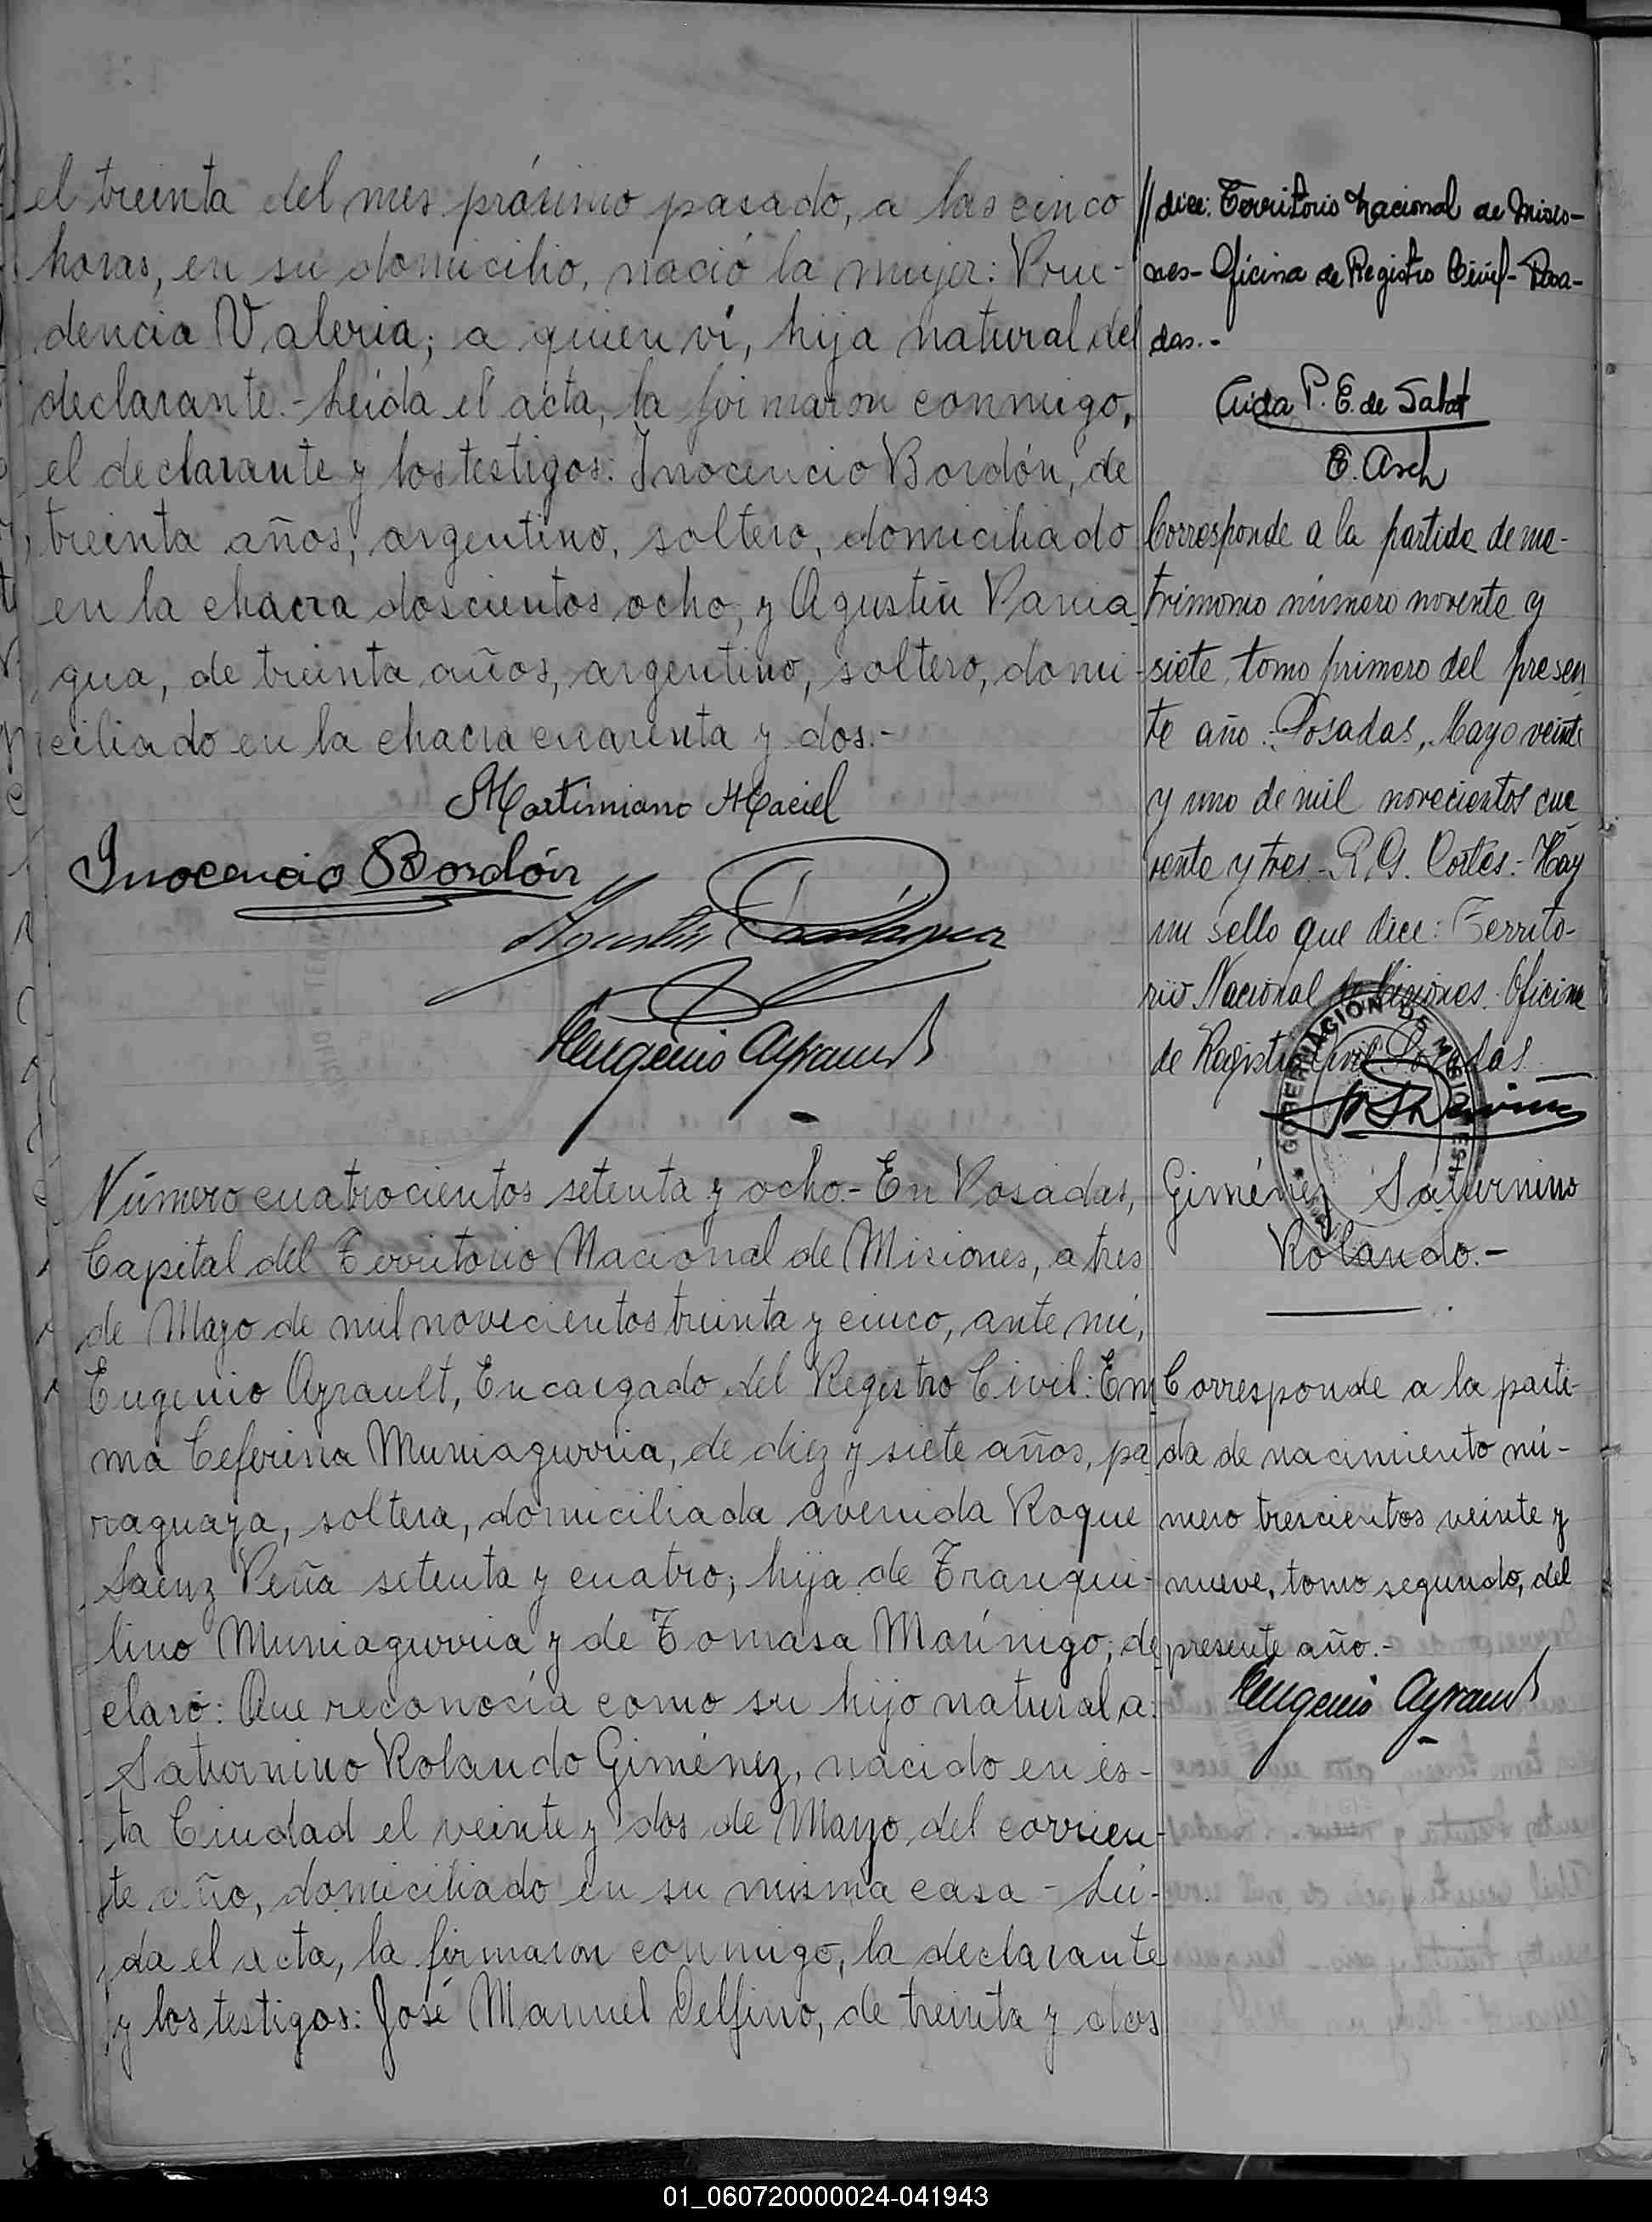 el treinta del mes próximo pasado, a las cinco
horas, en su domicilio, nació la mujer: Pru-
dencia Valeria; a quien vi, hija natural del
declarante.- Leída el acta, la firmaron conmigo,
el declarante y los testigos: Inocencio Bordón, de
treinta años, argentino, soltero, domiciliado
en la chacra doscientos ocho, y Agustín Pania-
gua, de treinta años, argentino, soltero, domi-
ciliado en la chacra cuarenta y dos.-
Martimiano Maciel
Inocencio Bordón
Agustín Paniagua
Eugenio Ayrault
Número cuatrocientos setenta y ocho.- En Posadas,
Capital del Territorio Nacional de Misiones, a tres
de Mayo de mil novecientos treinta y cinco, ante mí,
Eugenio Ayrault, Encargado del Registro Civil: Em-
ma Ceferina Muniagurria, de diez y siete años, pa-
raguaya, soltera, domiciliada avenida Roque
Saenz Peña setenta y cuatro; hija de Tranqui-
lino Muniagurria y de Tomasa Marínigo; de-
claró: Que reconocía como su hijo natural a:
Saturnino Rolando Giménez, nacido en és-
ta Ciudad el veinte y dos de Marzo del corrien-
te año, domiciliado en su misma casa - Leí-
da el acta, la firmaron conmigo, la declarante
y los testigos: José Manuel Delfino, de treinta y dos
// dice: Territorio Nacional de Misio-
nes- Oficina de Registro Civil- Posa-
das.-
P. E. de
E. Asch
Corresponde a la partida de ma-
trimonio número noventa y
siete, tomo primero del presen
te año.- Posadas, Mayo veinte
y uno de mil novecientos cua
renta y tres.- R. G. Cortés.- Hay
un sello que dice: Territo-
rio Nacional de Misiones. Oficina
de Registro Civil Posadas
GOBERNACION DE MISIONES
Giménez Saturnino
Rolando.-
Corresponde a la parti-
da de nacimiento nú-
mero trescientos veinte y
nueve, tomo segundo, del
presente año.-
Eugenio Ayrault
01_060720000024-041943